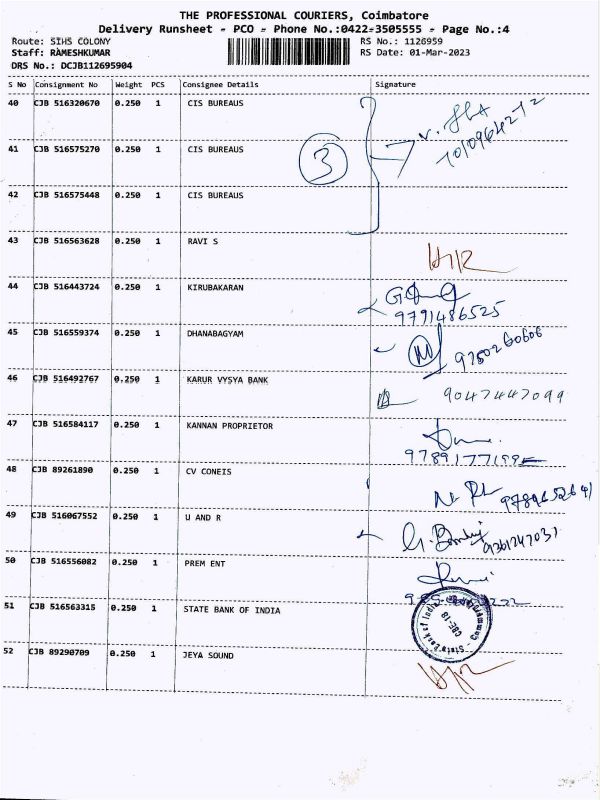 THE PROFESSIONAL COURIERS, Coimbatore
Delivery Runsheet - PCO - Phone No.:0422-3505555 - Page No.:4
Route: SIHS COLONY RS No.: 1126959
Staff: RAMESHKUMAR RS Date: 01-Mar-2023
DRS No.: DCJB112695904
S No Consignment No Weight PCS Consignee Details Signature
40 CJB 516320670 0.250 1 CIS BUREAUS
41 CJB 516575270 0.250 1 CIS BUREAUS 3
42 CJB 516575448 0.250 1 CIS BUREAUS
43 CJB 516563628 0.250 1 RAVI S
44 CJB 516443724 0.250 1 KIRUBAKARAN
9791486525
45 CJB 516559374 0.250 1 DHANABAGYAM
9750260606
46 CJB 516492767 0.250 1 KARUR VYSYA BANK 9047447099
47 CJB 516584117 0.250 1 KANNAN PROPRIETOR
48 CJB 89261890 0.250 1 CV CONEIS
49 CJB 516067552 0.250 1 U AND R
50 CJB 516556082 0.250 1 PREM ENT
51 CJB 516563315 0.250 1 STATE BANK OF INDIA
State Bank of India
CBE-18
52 CJB 89290709 0.250 1 JEYA SOUND